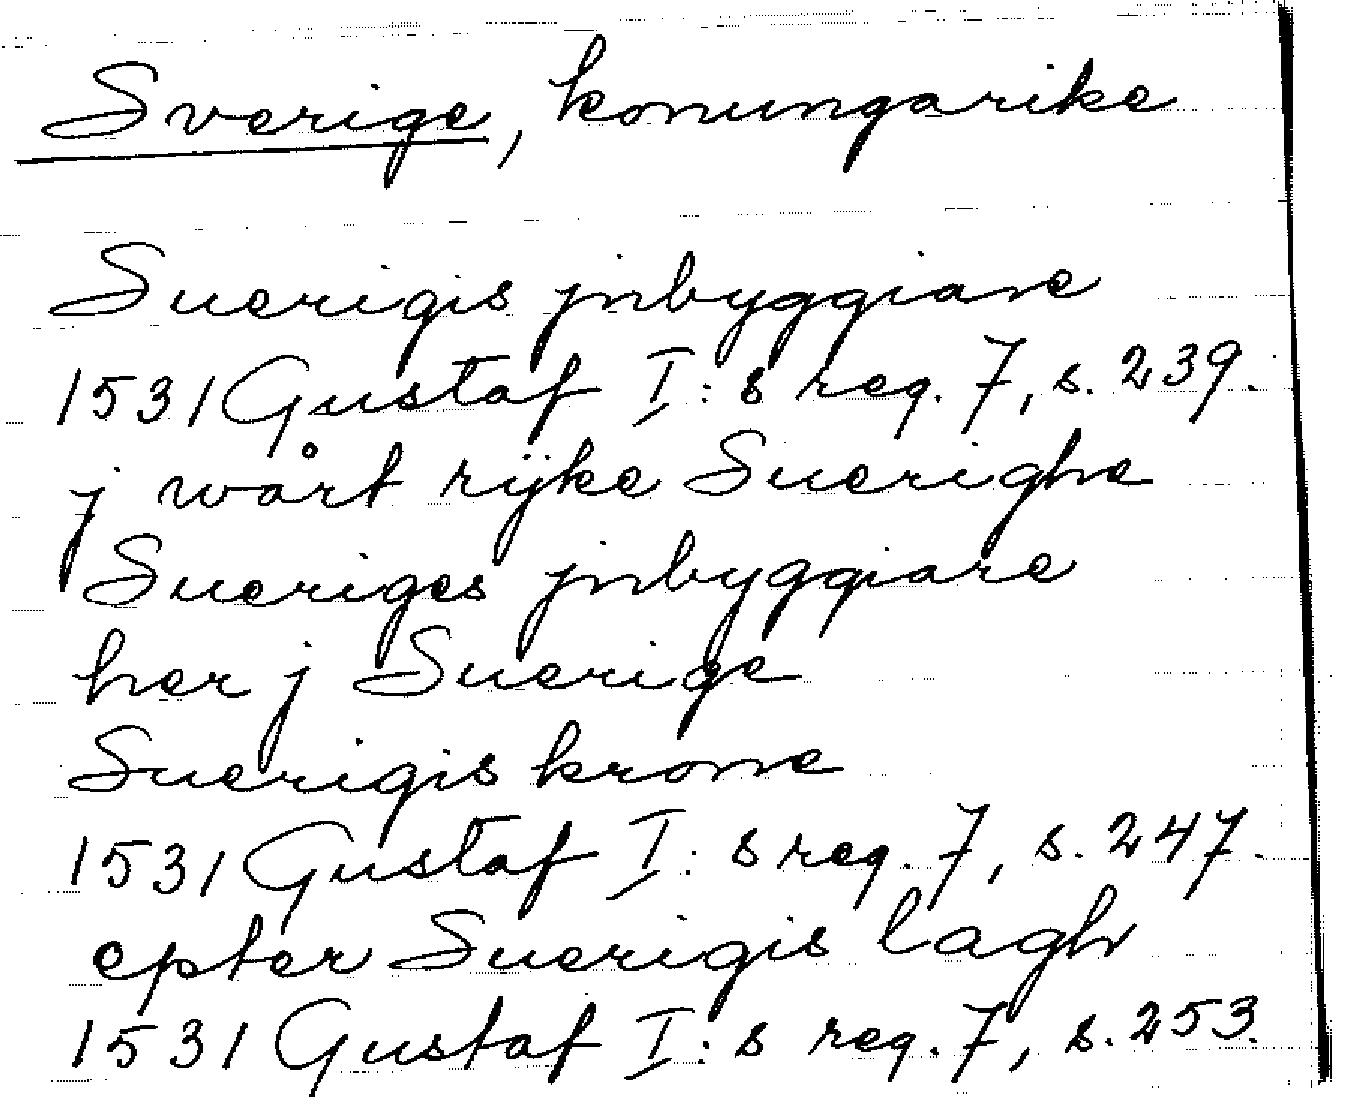 Sverige, konungarike
Suerigis jnbyggiare
1531 Gustaf I:s reg. 7, s. 239.
j wårt rijke Suerighe
Sueriges jnbyggiare
her j Suerige
Suerigis krone
1531 Gustaf I:s reg. 7, s. 247.
epter Suerigis lagh
1531 Gustaf I:s reg. 7, s. 253.